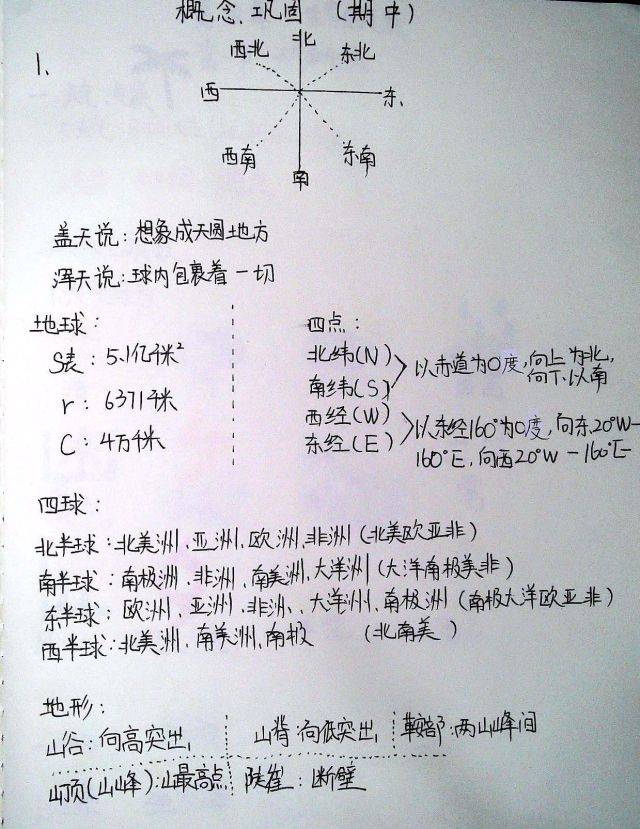 概念、巩固 (期中)
1.
西北 北 东北
西 东
西南 南 东南
盖天说:想象成天圆地方
浑天说:球内包裹着一切
地球:
S表:5.1亿千米²
r:6371千米
C:4万千米
四点:
北纬(N)
南纬(S)
以赤道为0度,向上为北,
向下以南
西经(W)
东经(E)
以东经160°为0度,向东20°W-
160°E,向西20°W-160°E
四球:
北半球:北美洲、亚洲、欧洲、非洲(北美欧亚非)
南半球:南极洲、非洲、南美洲、大洋洲(大洋南极美非)
东半球:欧洲、亚洲、非洲、大洋洲、南极洲(南极大洋欧亚非)
西半球:北美洲、南美洲、南极 (北南美)
地形:
山谷:向高突出 山脊:向低突出 鞍部:两山峰间
山顶(山峰):山最高点 陡崖:断壁